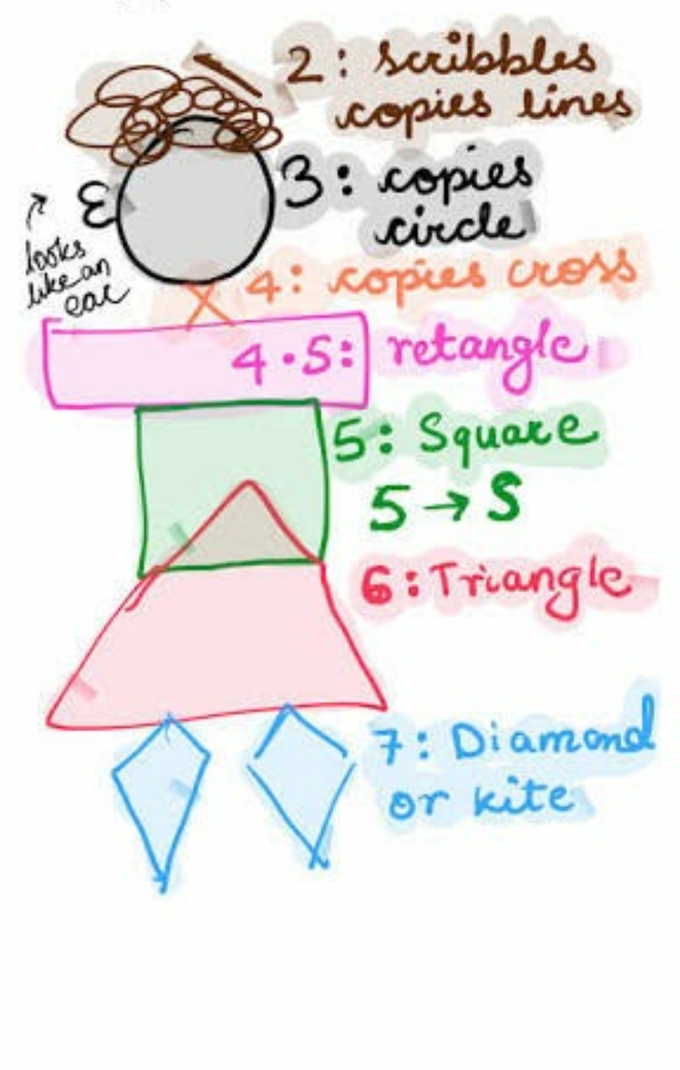 2: scribbles
copies lines
3: copies
circle
looks
like an
ear
4: copies cross
4.5: retangle
5: Square
5 → S
6: Triangle
7: Diamond
or kite